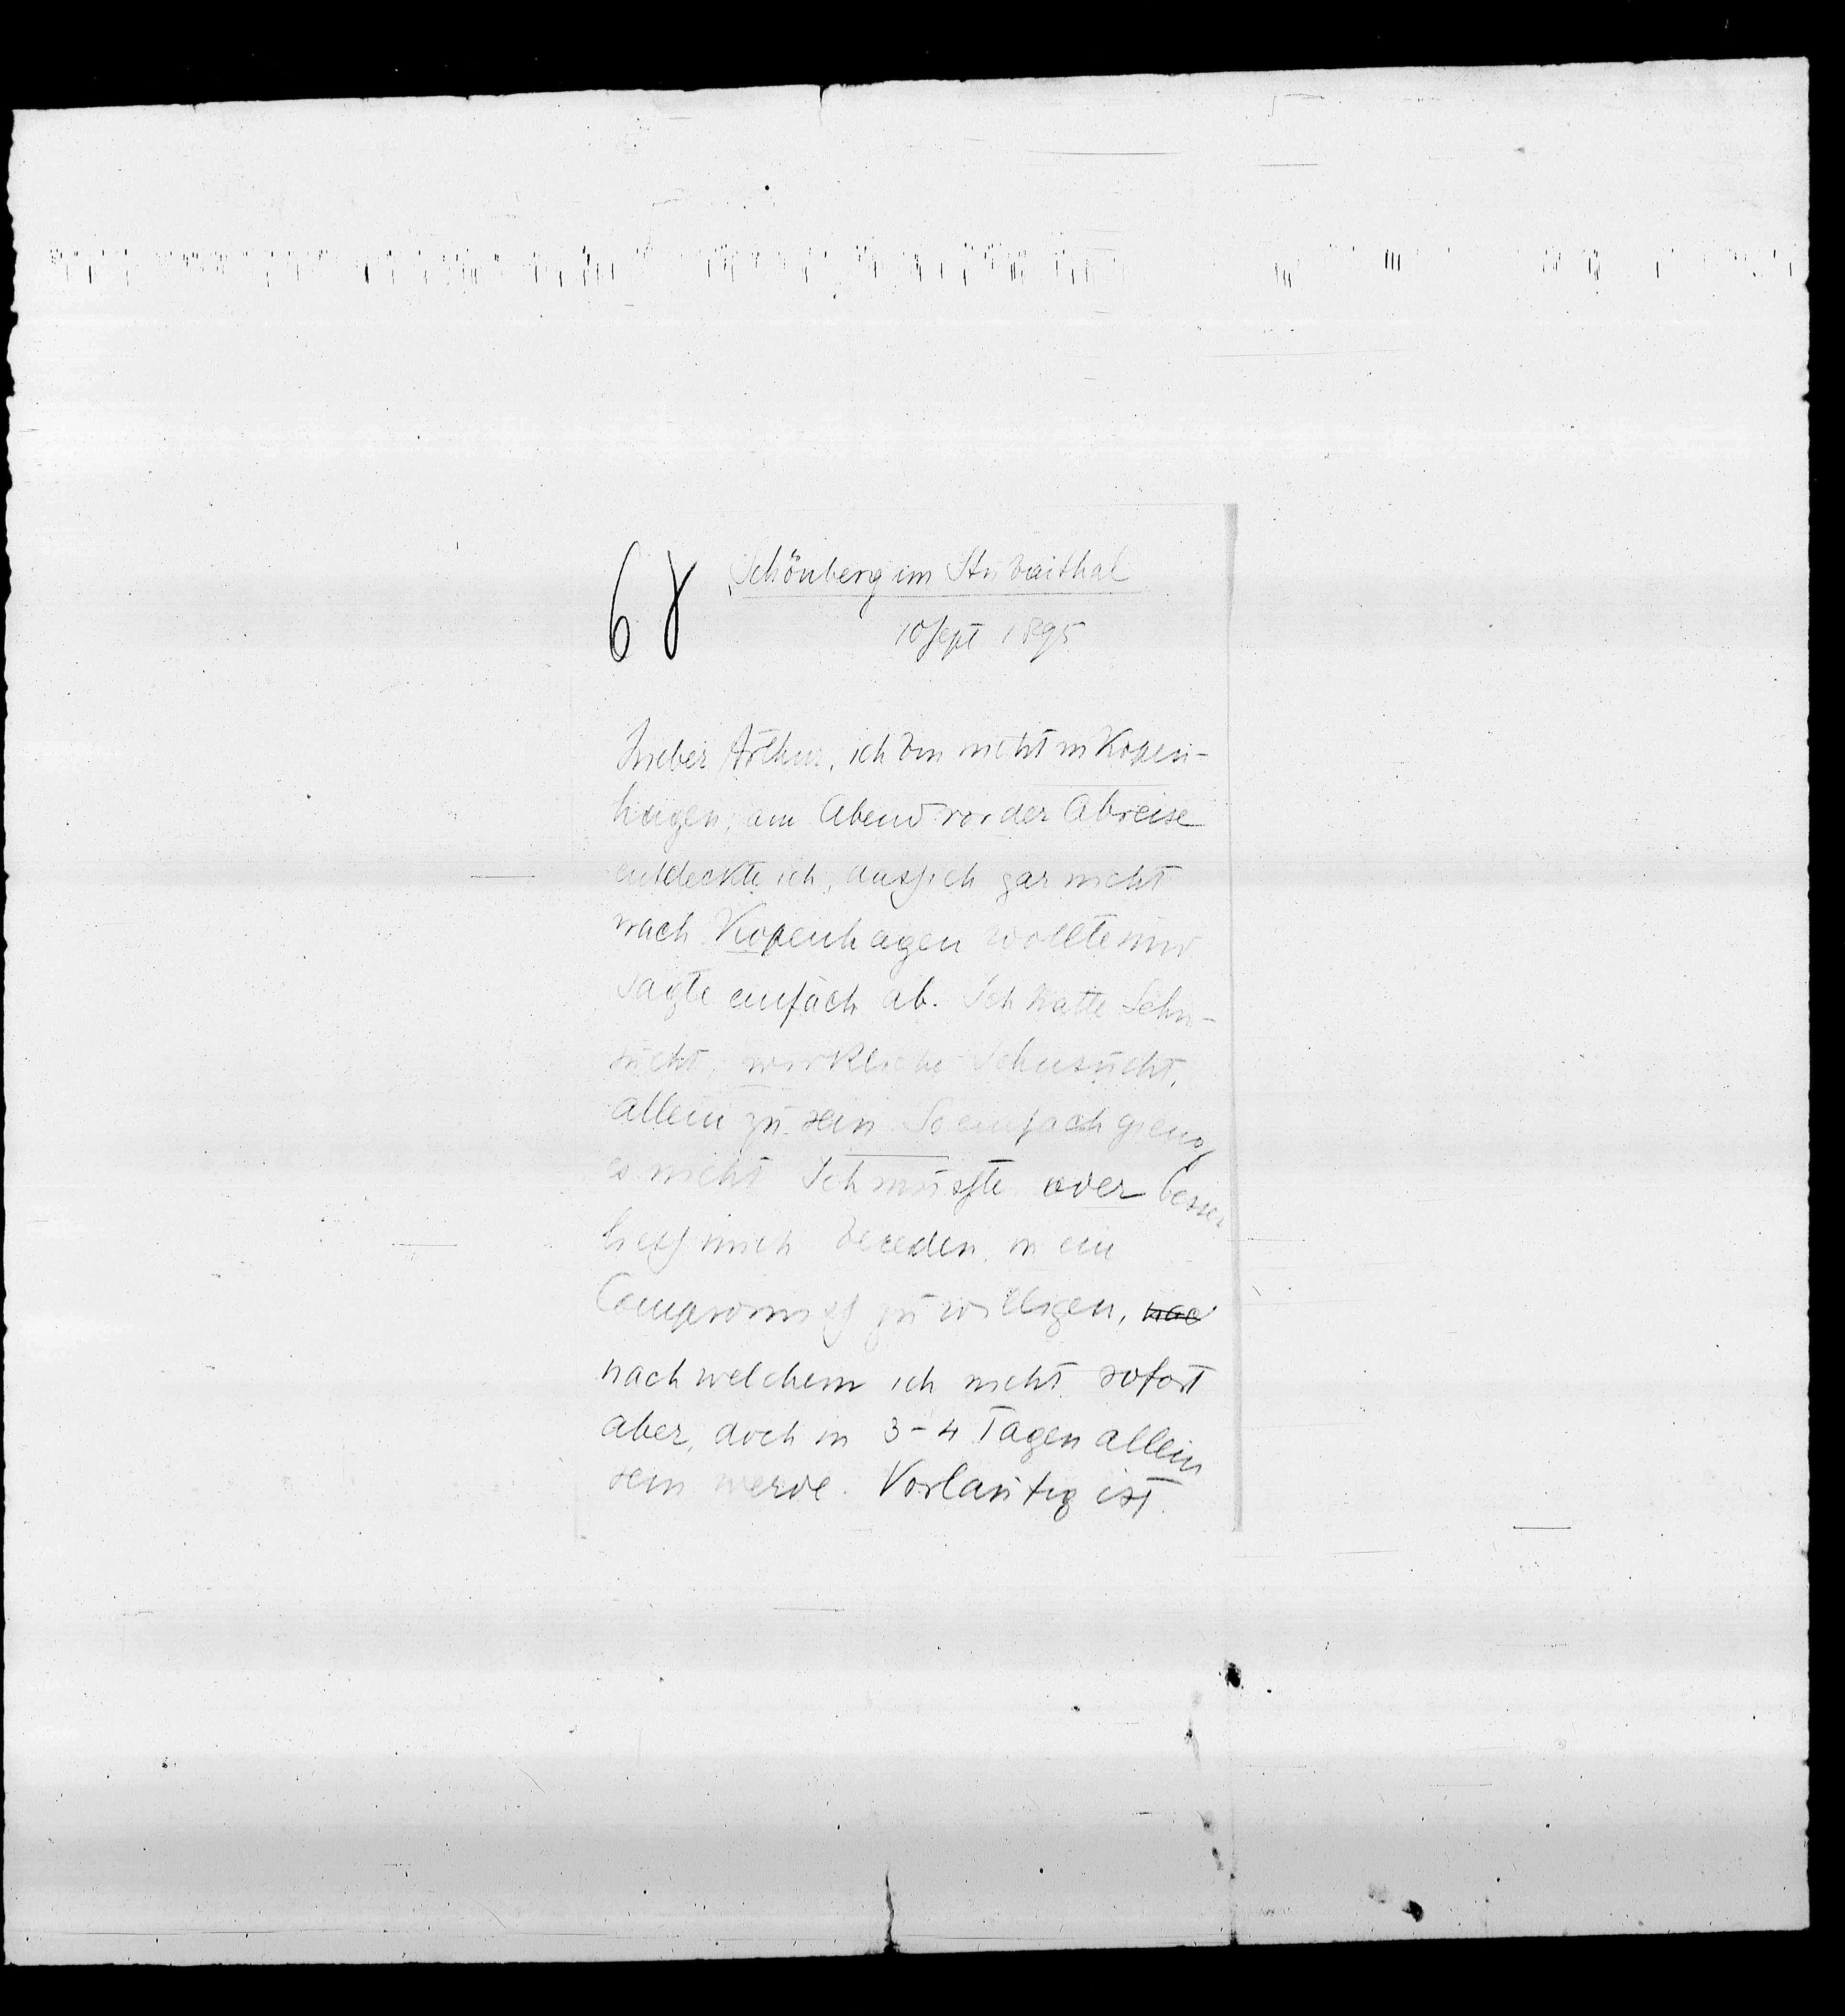 68
Schönberg im Stubaithal
10 Sept 1895
Lieber Arthur, ich bin nicht in Kopen-
hagen, am Abend vor der Abreise
entdeckte ich, dass ich gar nicht
nach Kopenhagen wollte und
sagte einfach ab. Ich hatte Sehn-
sucht, wirkliche Sehnsucht,
allein zu sein. So einfach gieng
es nicht Ich musste oder besser
liess mich bereden, in ein
Compromiss zu willigen, nac
nach welchem ich nicht sofort
aber, doch in 3-4 Tagen allein
sein werde. Vorläufig ist